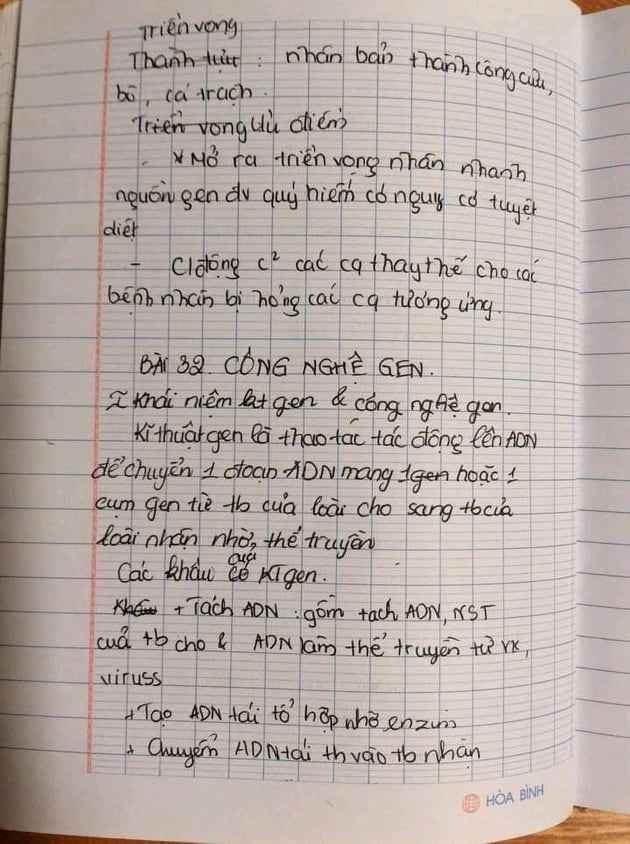 Triển vọng
Thành tựu : nhân bản thành công cừu,
bò, cá trạch.
Triển vọng ưu điểm
- * Mở ra triển vọng nhân nhanh
nguồn gen đv quý hiếm có nguy cơ tuyệt
diệt
- Clđộng c² các cq thay thế cho các
bệnh nhân bị hỏng các cq tương ứng.
BÀI 32. CÔNG NGHỆ GEN.
I Khái niệm kt gen & công nghệ gen.
Kĩ thuật gen là thao tác tác động lên ADN
để chuyển 1 đoạn ADN mang 1 gen hoặc 1
cụm gen từ tb của loài cho sang tb của
loài nhận nhờ thể truyền
Các khâu của KT gen.
+ Tách ADN : gồm tách ADN, NST
của tb cho & ADN làm thể truyền từ VK,
viruss
+ Tạo ADN tái tổ hợp nhờ enzim
+ Chuyển ADN tái th vào tb nhận
HÒA BÌNH